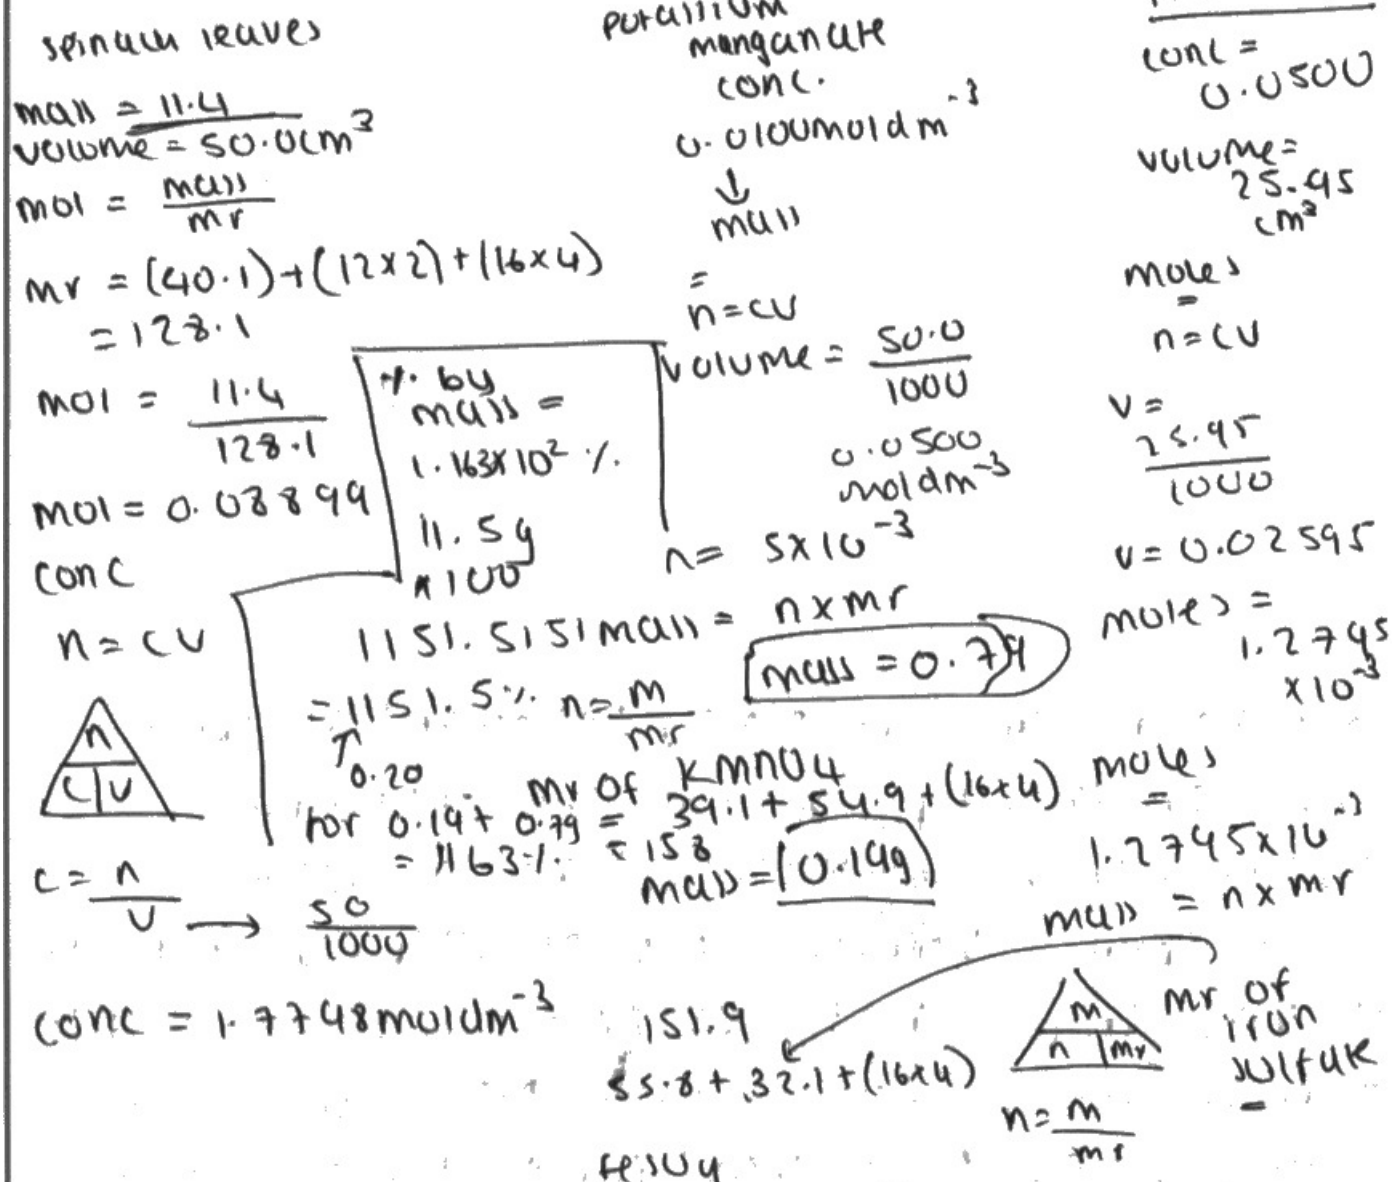 spinach leaves
mass = 11.4
volume = 50.0cm³
mol = mass / mr
mr = (40.1)+(12x2)+(16x4)
= 128.1
mol = 11.4 / 128.1
mol = 0.08899
conc
n = cv
n
c | v
c = n / v → 50 / 1000
conc = 1.7748moldm⁻³
% by
mass =
1.163x10² %.
11.5g
x100
1151.5151
= 1151.5%
↑
0.20
for 0.14+ 0.79
= 1163%
potassium
manganate
conc.
0.0100moldm⁻³
↓
mass
=
n=cv
volume = 50.0 / 1000
0.0500
moldm⁻³
n= 5x10⁻³
mass = n x mr
mass = 0.79
n= m / mr
mr of KMnO4
= 39.1+ 54.9+(16x4)
= 158
mass = 0.14g
151.9
55.8+32.1+(16x4)
FeSO4
conc =
0.0500
volume=
25.95
cm³
moles
=
n=cv
v=
25.95 / 1000
v= 0.02595
moles =
1.2795
x10⁻³
moles
=
1.2795x10⁻³
mass = n x mr
m
n | mr
mr of
iron
sulfate
n= m / mr